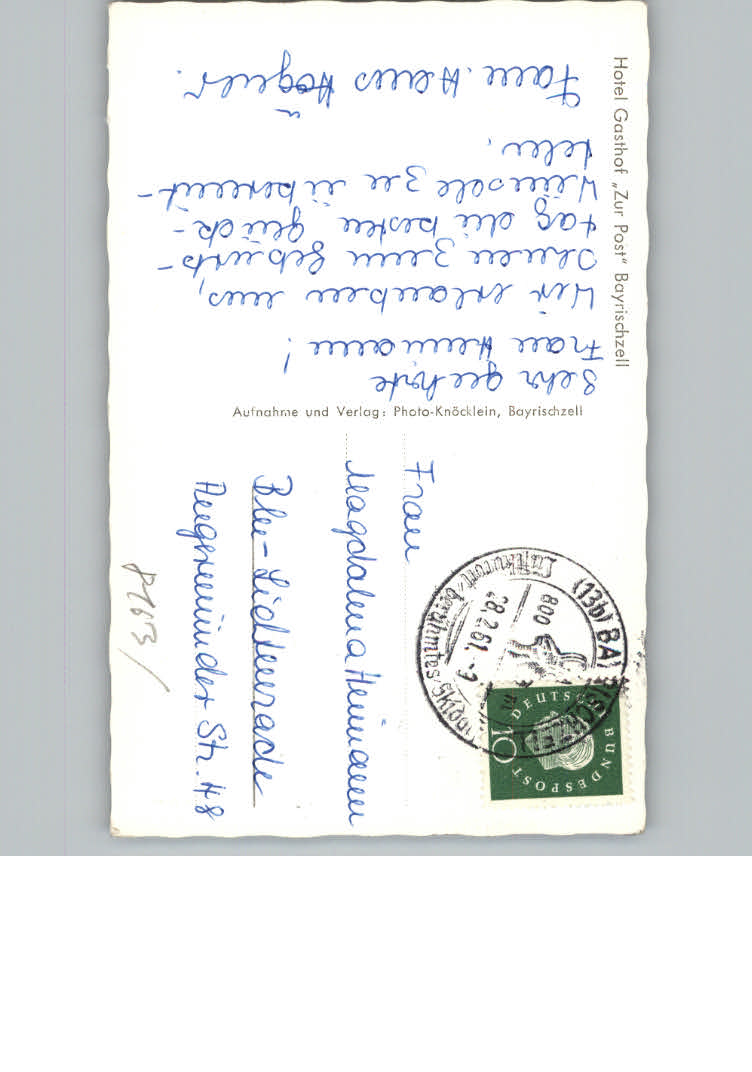 Hotel Gasthof „Zur Post“ Bayrischzell
Sehr geehrte
Frau Heimann!
Wir erlauben uns,
Ihnen zum Geburts-
tag die besten Glück-
wünsche zu übermit-
teln.
Fam. Hans
Aufnahme und Verlag: Photo-Knöcklein, Bayrischzell
Frau
Magdalena Heimann
Bln-Lichtenrade
Str. 48
(13b) BAYRISCHZELL
28.2.61.-9
800
Luftkurort, berühmtes
DEUTSCHE
BUNDESPOST
10